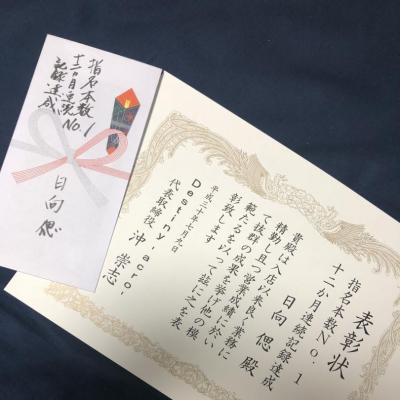 表彰状
指名本数No.1
十二か月連続記録達成
日向 偲 殿
貴殿は入店以来良く業務に
精勤し且つ営業成績に於い
て抜群の成果を挙げ他の模
範たるを以って茲に之を表
彰致します
平成三十年七月九日
Destiny acro.
代表取締役 沖 崇志
指名本数No.1
十二ヶ月連続
記録達成
日向 偲